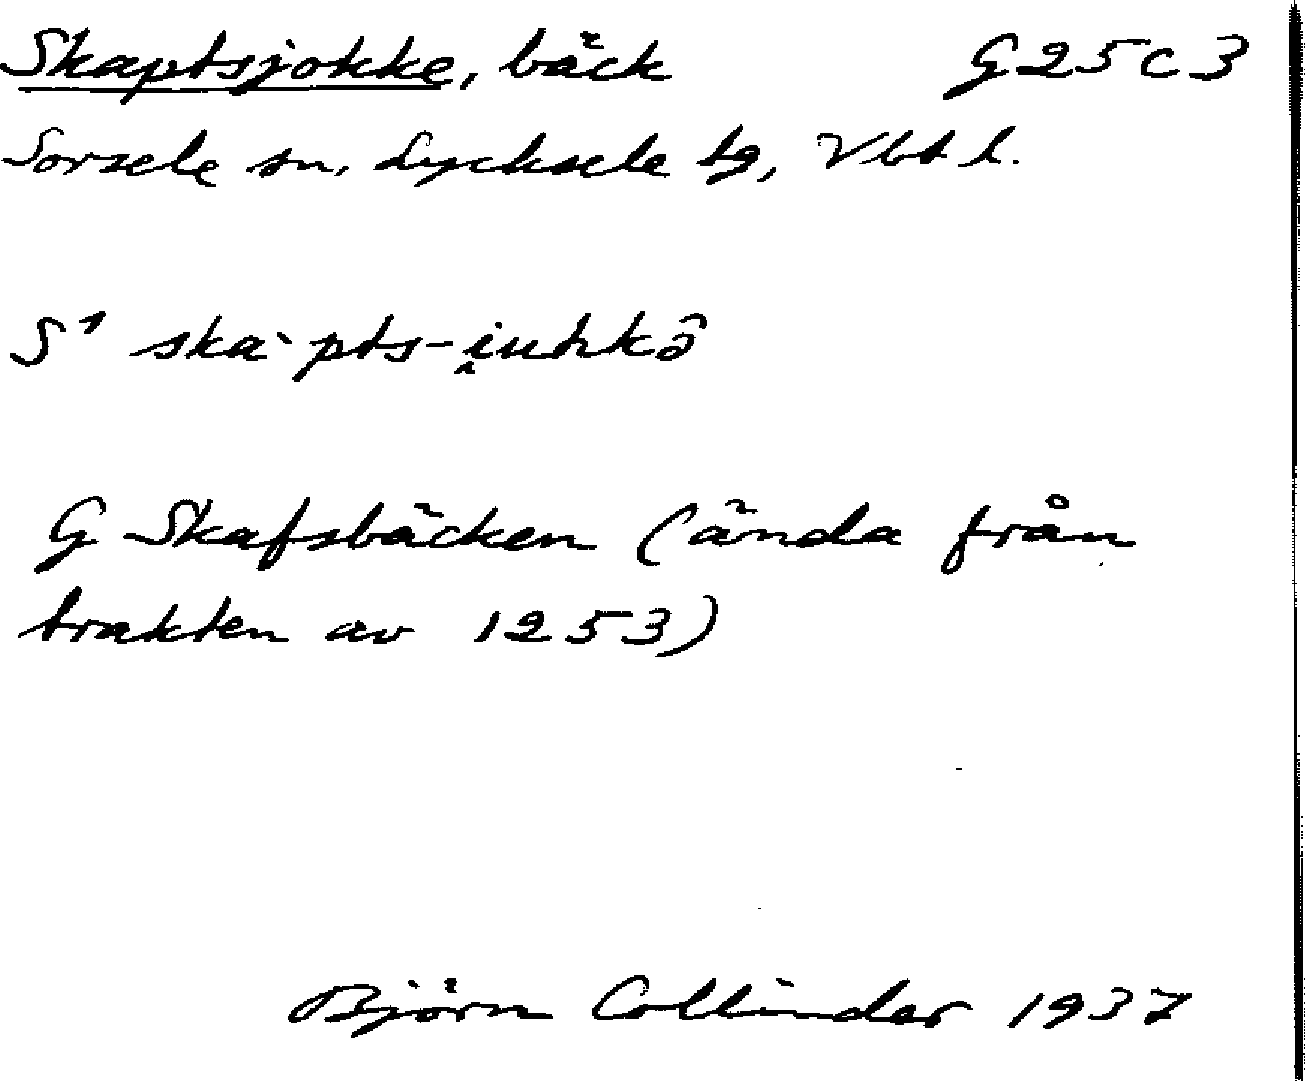 Skaptsjokke, bäck G25C3
Sorsele sn, Lycksele tg, Vbt l.
S1 ska`pts-i̯uhkə̂
G Skafsbäcken (ända från
trakten av 1253)
Björn Collinder 1937